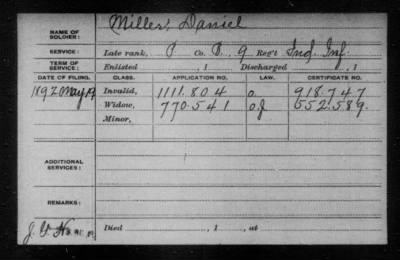 NAME OF SOLDIER: Miller, Daniel
SERVICE: Late rank, P Co. B, 9 Reg't Ind. Inf.
TERM OF SERVICE: Enlisted , 1 Discharged , 1
DATE OF FILING. CLASS. APPLICATION NO. LAW. CERTIFICATE NO.
1892 May 19 Invalid, 1111.804 o. 918.747
Widow, 770.541 o.j 552.589.
Minor,
ADDITIONAL SERVICES:
REMARKS:
Died , 1 , at